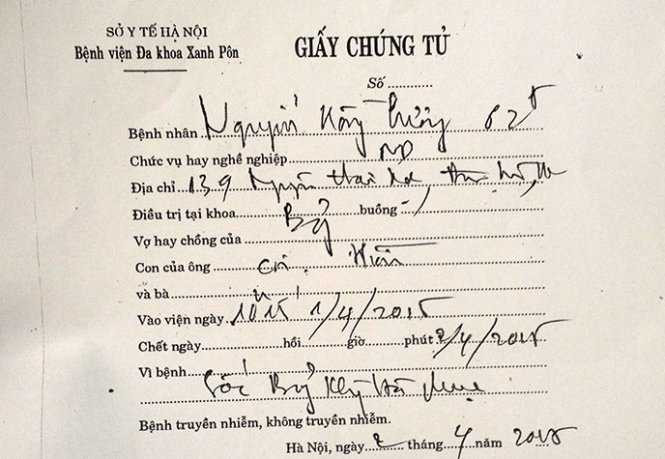 SỞ Y TẾ HÀ NỘI
Bệnh viện Đa khoa Xanh Pôn
GIẤY CHỨNG TỬ
Số
Bệnh nhân Nguyễn Hồng 62t
Chức vụ hay nghề nghiệp
Địa chỉ 139 Nguyễn Thái Học
Điều trị tại khoa Bỏng buồng
Vợ hay chồng của
Con của ông Hiền
và bà
Vào viện ngày 1/4/2015
Chết ngày hồi giờ phút 2/4/2015
Vì bệnh Sốc Bỏng
Bệnh truyền nhiễm, không truyền nhiễm.
Hà Nội, ngày 2 tháng 4 năm 2015